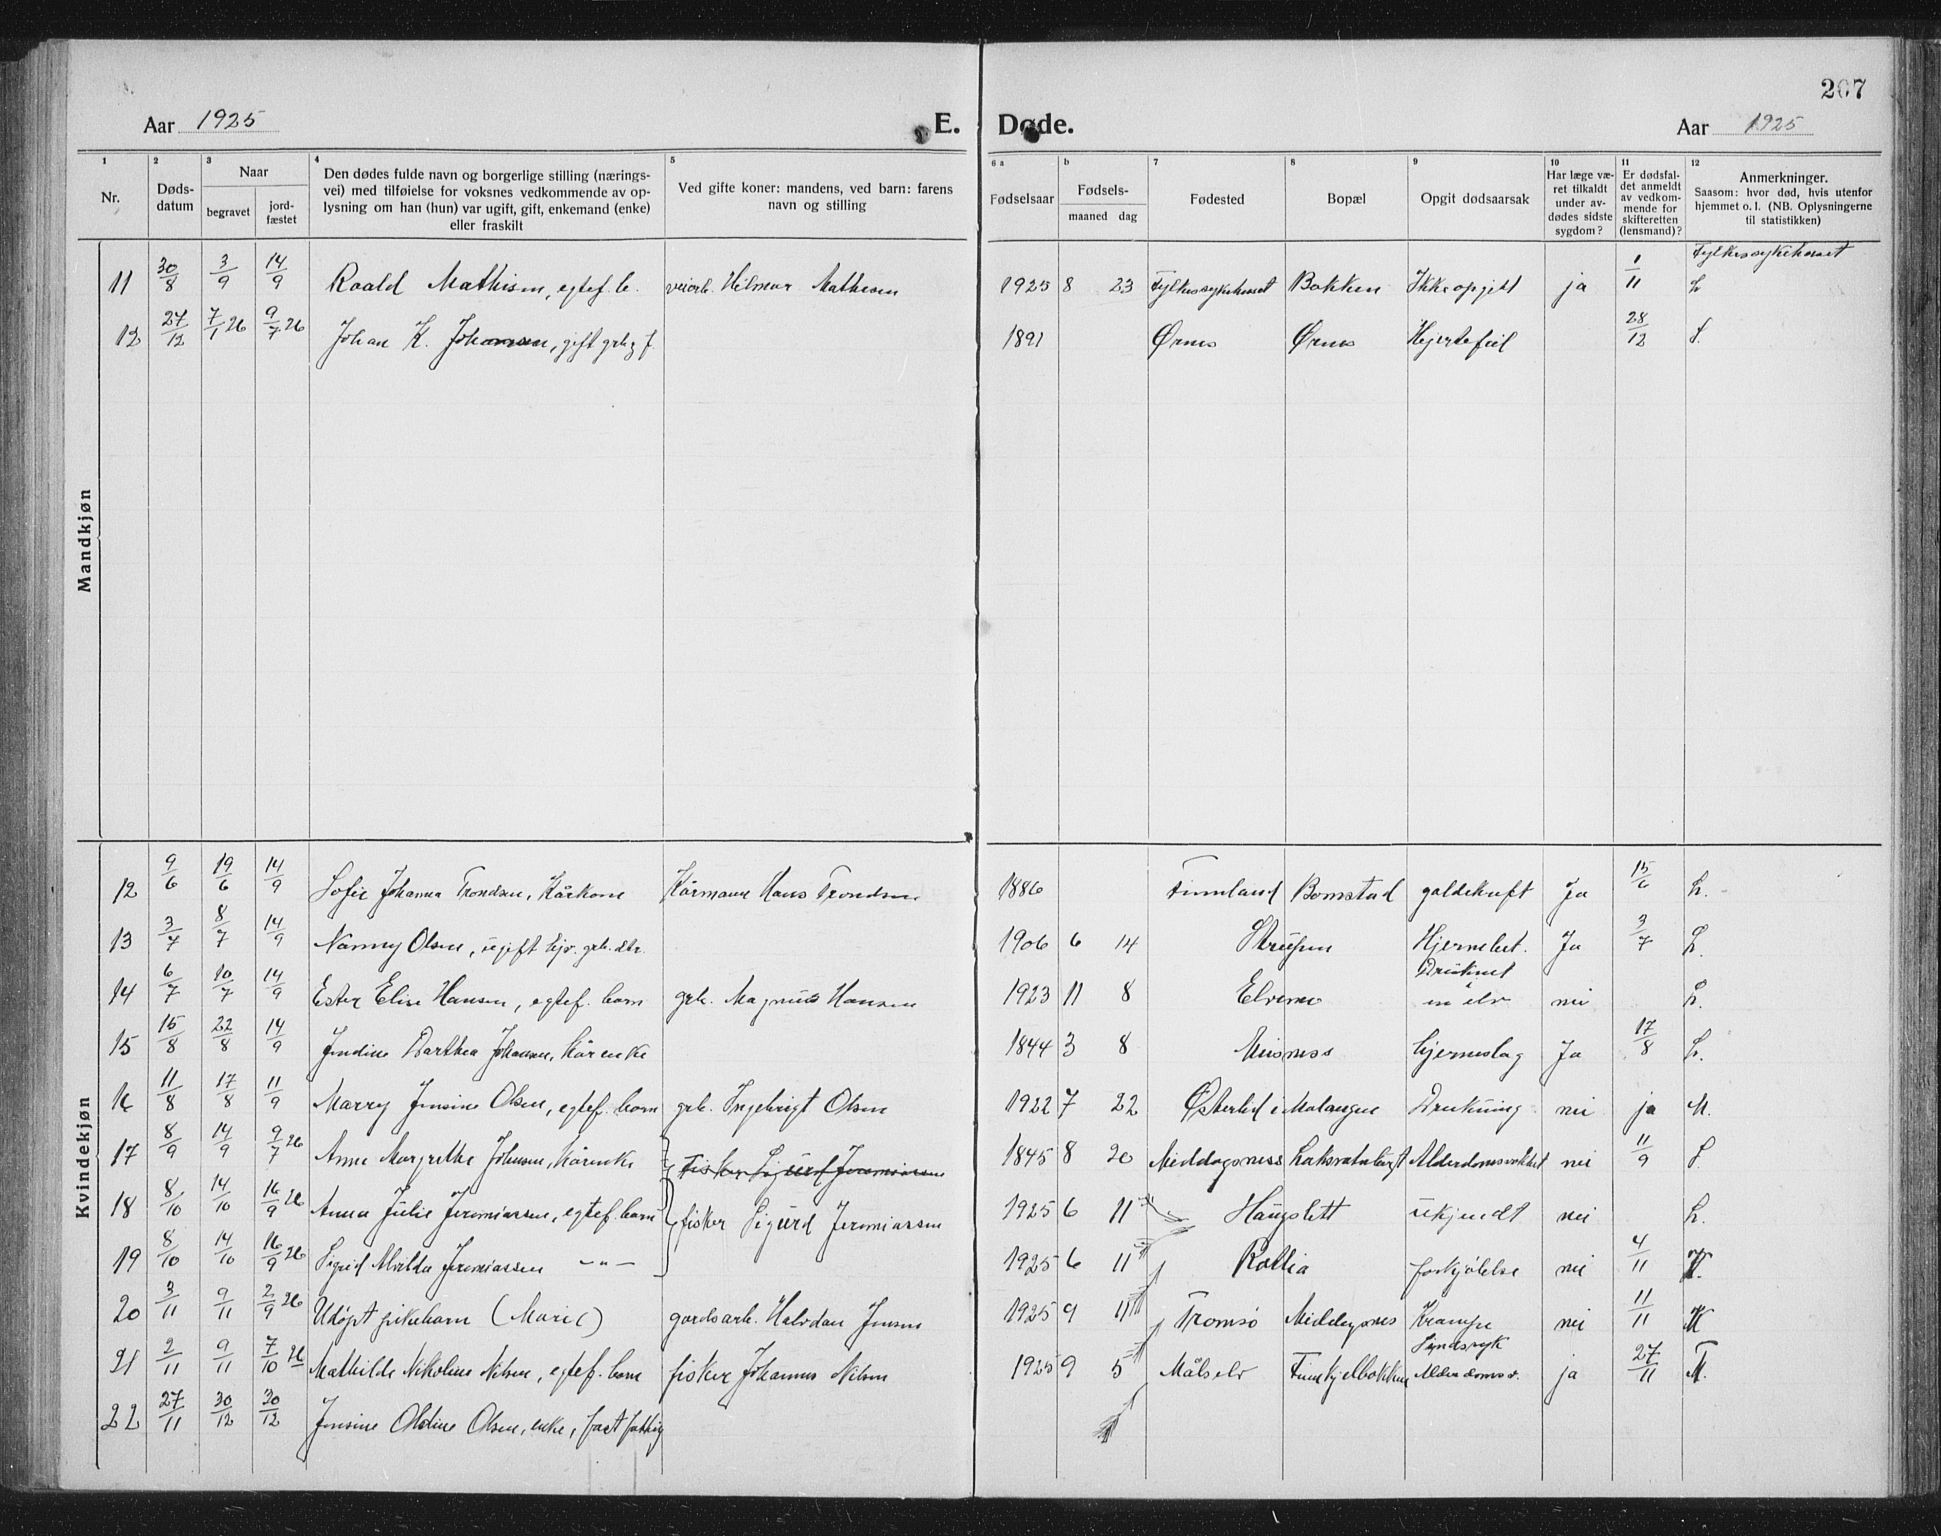 207
Aar 1925
E. Døde.
Aar 1925
1 2 3 4 5 6 a b 7 8 9 10 11 12
Nr.
Døds-
datum
Naar
begravet
jord-
fæstet
Den dødes fulde navn og borgerlige stilling (nærings-
vei) med tilføielse for voksnes vedkommende av op-
lysning om han (hun) var ugift, gift, enkemand (enke)
eller fraskilt
Ved gifte koner: mandens, ved barn: farens
navn og stilling
Fødselsaar
Fødsels-
maaned dag
Fødested
Bopæl
Opgit dødsaarsak
Har læge væ-
ret tilkaldt
under av-
dødes sidste
sygdom?
Er dødsfal-
det anmeldt
av vedkom-
mende for
skifteretten
(lensmand)?
Anmerkninger.
Saasom: hvor død, hvis utenfor
hjemmet o. l. (NB. Oplysningerne
til statistikken)
Mandkjøn
Fylkessykehuset
11 30/8 3/9 14/9 Roald Mathisen, egtef. b. veiarb. Hilmar Mathisen 1925 8 23 Fylkessykehuset Bakken Ikke opgitt ja 1/11 L
12 27/12 7/1 26 9/7 26 Johan K. Johansen, gift grbg f. 1891 Ørnes Ørnes Hjertefeil 28/12 S.
Kvindekjøn
12 9/6 19/6 14/9 Sofie Johanna Trondsen, Kårkone Kårmann Hans Trondsen 1886 Finnland Bomstad galdekreft Ja 15/6 L.
13 3/7 8/7 14/9 Nanny Olsen, ugift hjv. grb. dtr. 1906 6 14 Strupen Hjernebet. Ja 3/7 L.
14 6/7 10/7 14/9 Ester Elise Hansen, egtef. barn grb. Magnus Hansen 1923 11 8 Elvenes Druknet i en elv nei L.
15 15/8 22/8 14/9 Jendine Darthea Johansen, kårenke 1844 3 8 Meisness hjerneslag Ja 17/8 L.
16 11/8 17/8 11/9 Marry Jensine Olsen, egtef. barn grb. Ingebrigt Olsen 1922 7 22 Østerlid i Malangen Drukning nei ja M.
17 8/9 14/9 9/7 26 Anne Margrethe Johnsen, kårenke fisker Sigurd Jeremiassen 1845 8 20 Middagsness Laksvatn Alderdomssvakhet nei 11/9 S.
18 8/10 14/10 16/9 26 Anna Julie Jeremiassen, egtef. barn fisker Sigurd Jeremiassen 1925 6 11 Haugslett ukjendt nei L.
19 8/10 14/10 16/9 26 Sigrid Alvilda Jeremiassen -"- 1925 6 11 Kallia forkjølelse nei 4/11
20 3/11 9/11 2/9 26 Udøpt pikebarn (Marie) gardsarb. Halvdan Jensen 1925 9 11 Tromsø Middagsnes Krampe nei 11/11 K
21 2/11 9/11 7/10 26 Mathilde Nikoline Nilsen, egtef. barn fisker Johannes Nilsen 1925 9 5 Målselv Finnkjelbakken Alderdomss. ja 27/11 M.
22 27/11 30/12 30/12 Jensine Oldine Olsen, enke, fast fattig